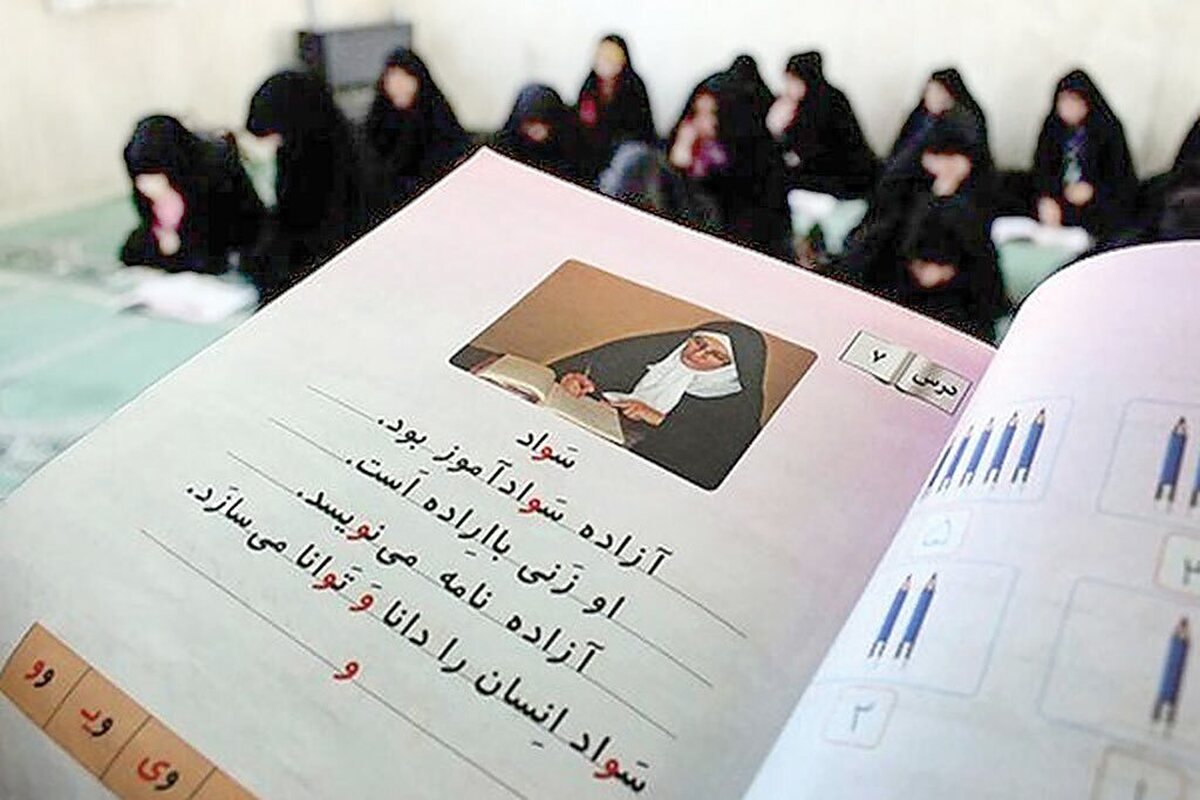 درس ۷
سَواد
آزاده سَوادآموز بود.
او زَنی بااِراده اَست.
آزاده نامه می‌نویسد.
سَواد اِنسان را دانا وَ تَوانا می‌سازَد.
و
وو
وـ
وی
۵
۳
۲
۱